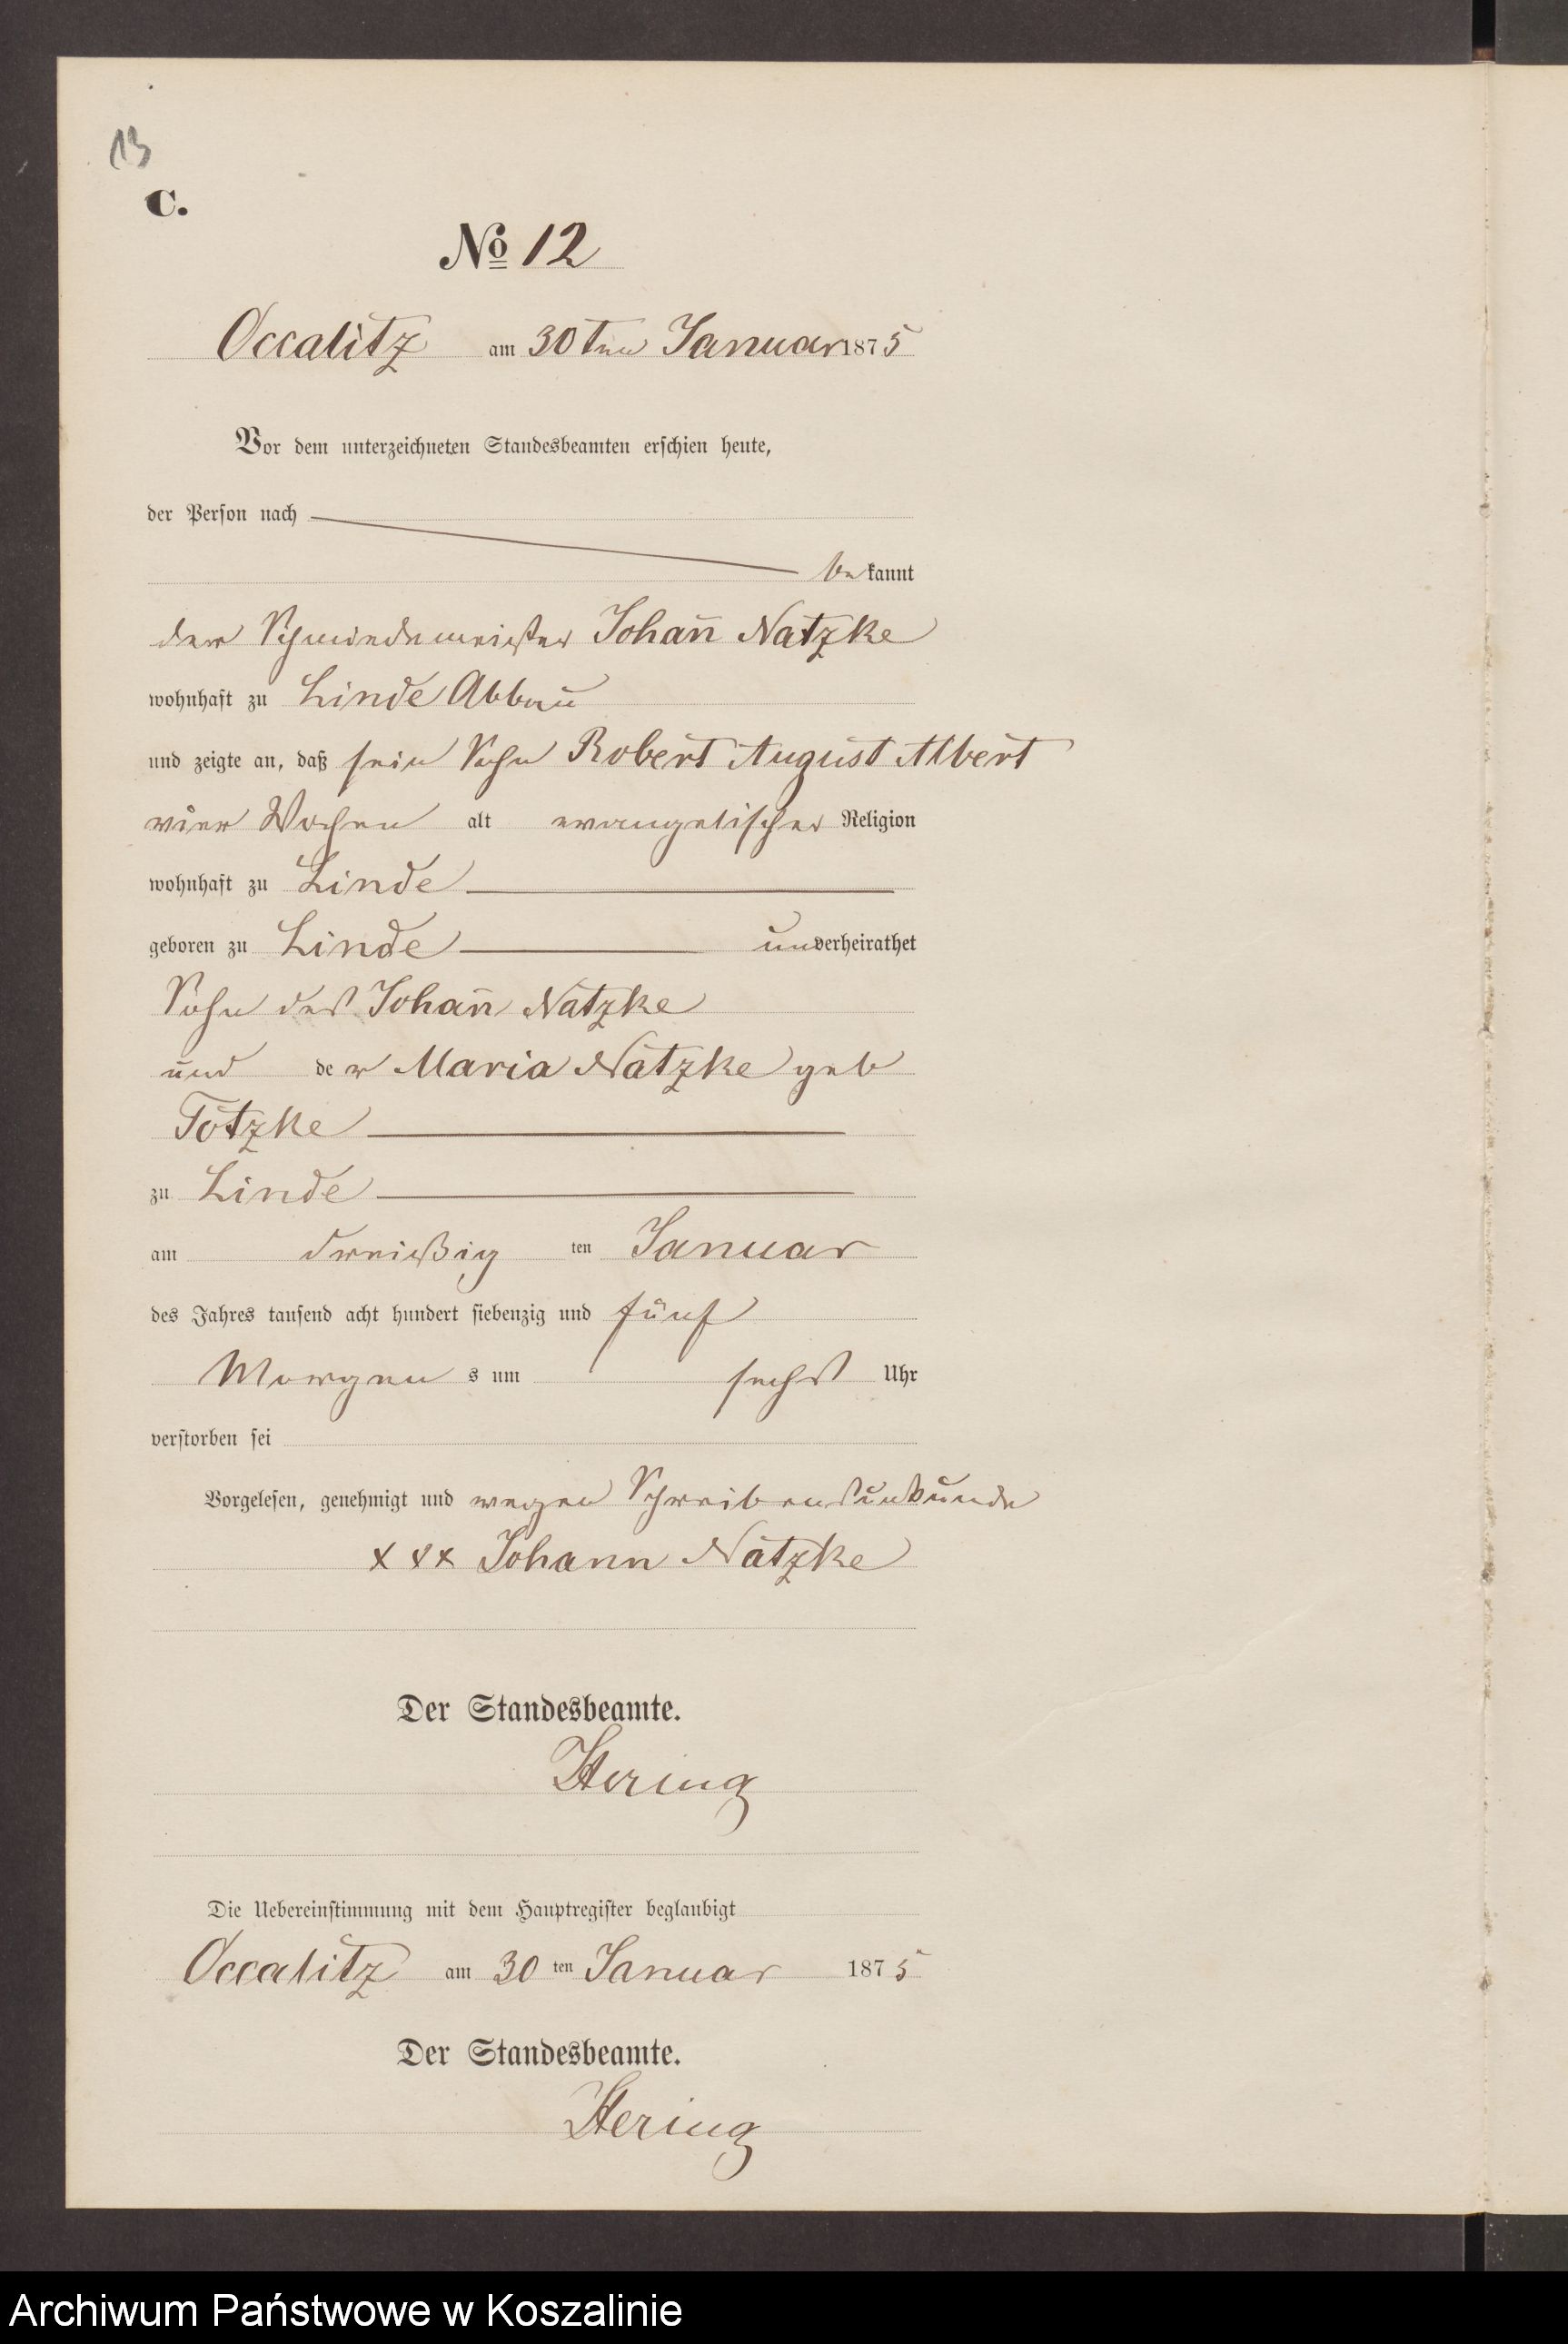 13
C.
No 12
Occalitz am 30ten Januar 1875
Vor dem unterzeichneten Standesbeamten erschien heute,
der Person nach
bekannt
der Schmiedemeister Johan̄ Natzke
wohnhaft zu Linde Abbau
und zeigte an, daß sein Sohn Robert August Albert
vier Wochen alt evangelischer Religion
wohnhaft zu Linde
geboren zu Linde unverheirathet
Sohn des Johan̄ Natzke
und der Maria Natzke geb
Totzke
zu Linde
am dreißig ten Januar
des Jahres tausend acht hundert siebenzig und fünf
Morgens um sechs Uhr
verstorben sei
Vorgelesen, genehmigt und wegen Schreibensunkunde
xxx Johann Natzke
Der Standesbeamte.
Hering
Die Uebereinstimmung mit dem Hauptregister beglaubigt
Occalitz am 30 ten Januar 1875
Der Standesbeamte.
Hering
Archiwum Państwowe w Koszalinie